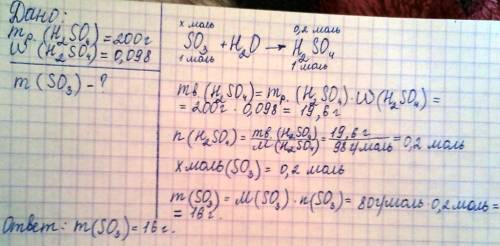 Дано:
mр.(H₂SO₄)=200г
W(H₂SO₄)=0,098
m(SO₃)-?
x моль 0,2 моль
SO₃ + H₂O → H₂SO₄
1 моль 1 моль
mв.(H₂SO₄)=mр.(H₂SO₄)·W(H₂SO₄)=
=200г·0,098=19,6г
n(H₂SO₄)=mв.(H₂SO₄)/M(H₂SO₄)=19,6г/98г/моль=0,2 моль
x моль(SO₃)=0,2 моль
m(SO₃)=M(SO₃)·n(SO₃)=80г/моль·0,2моль=
=16г.
Ответ: m(SO₃)=16г.